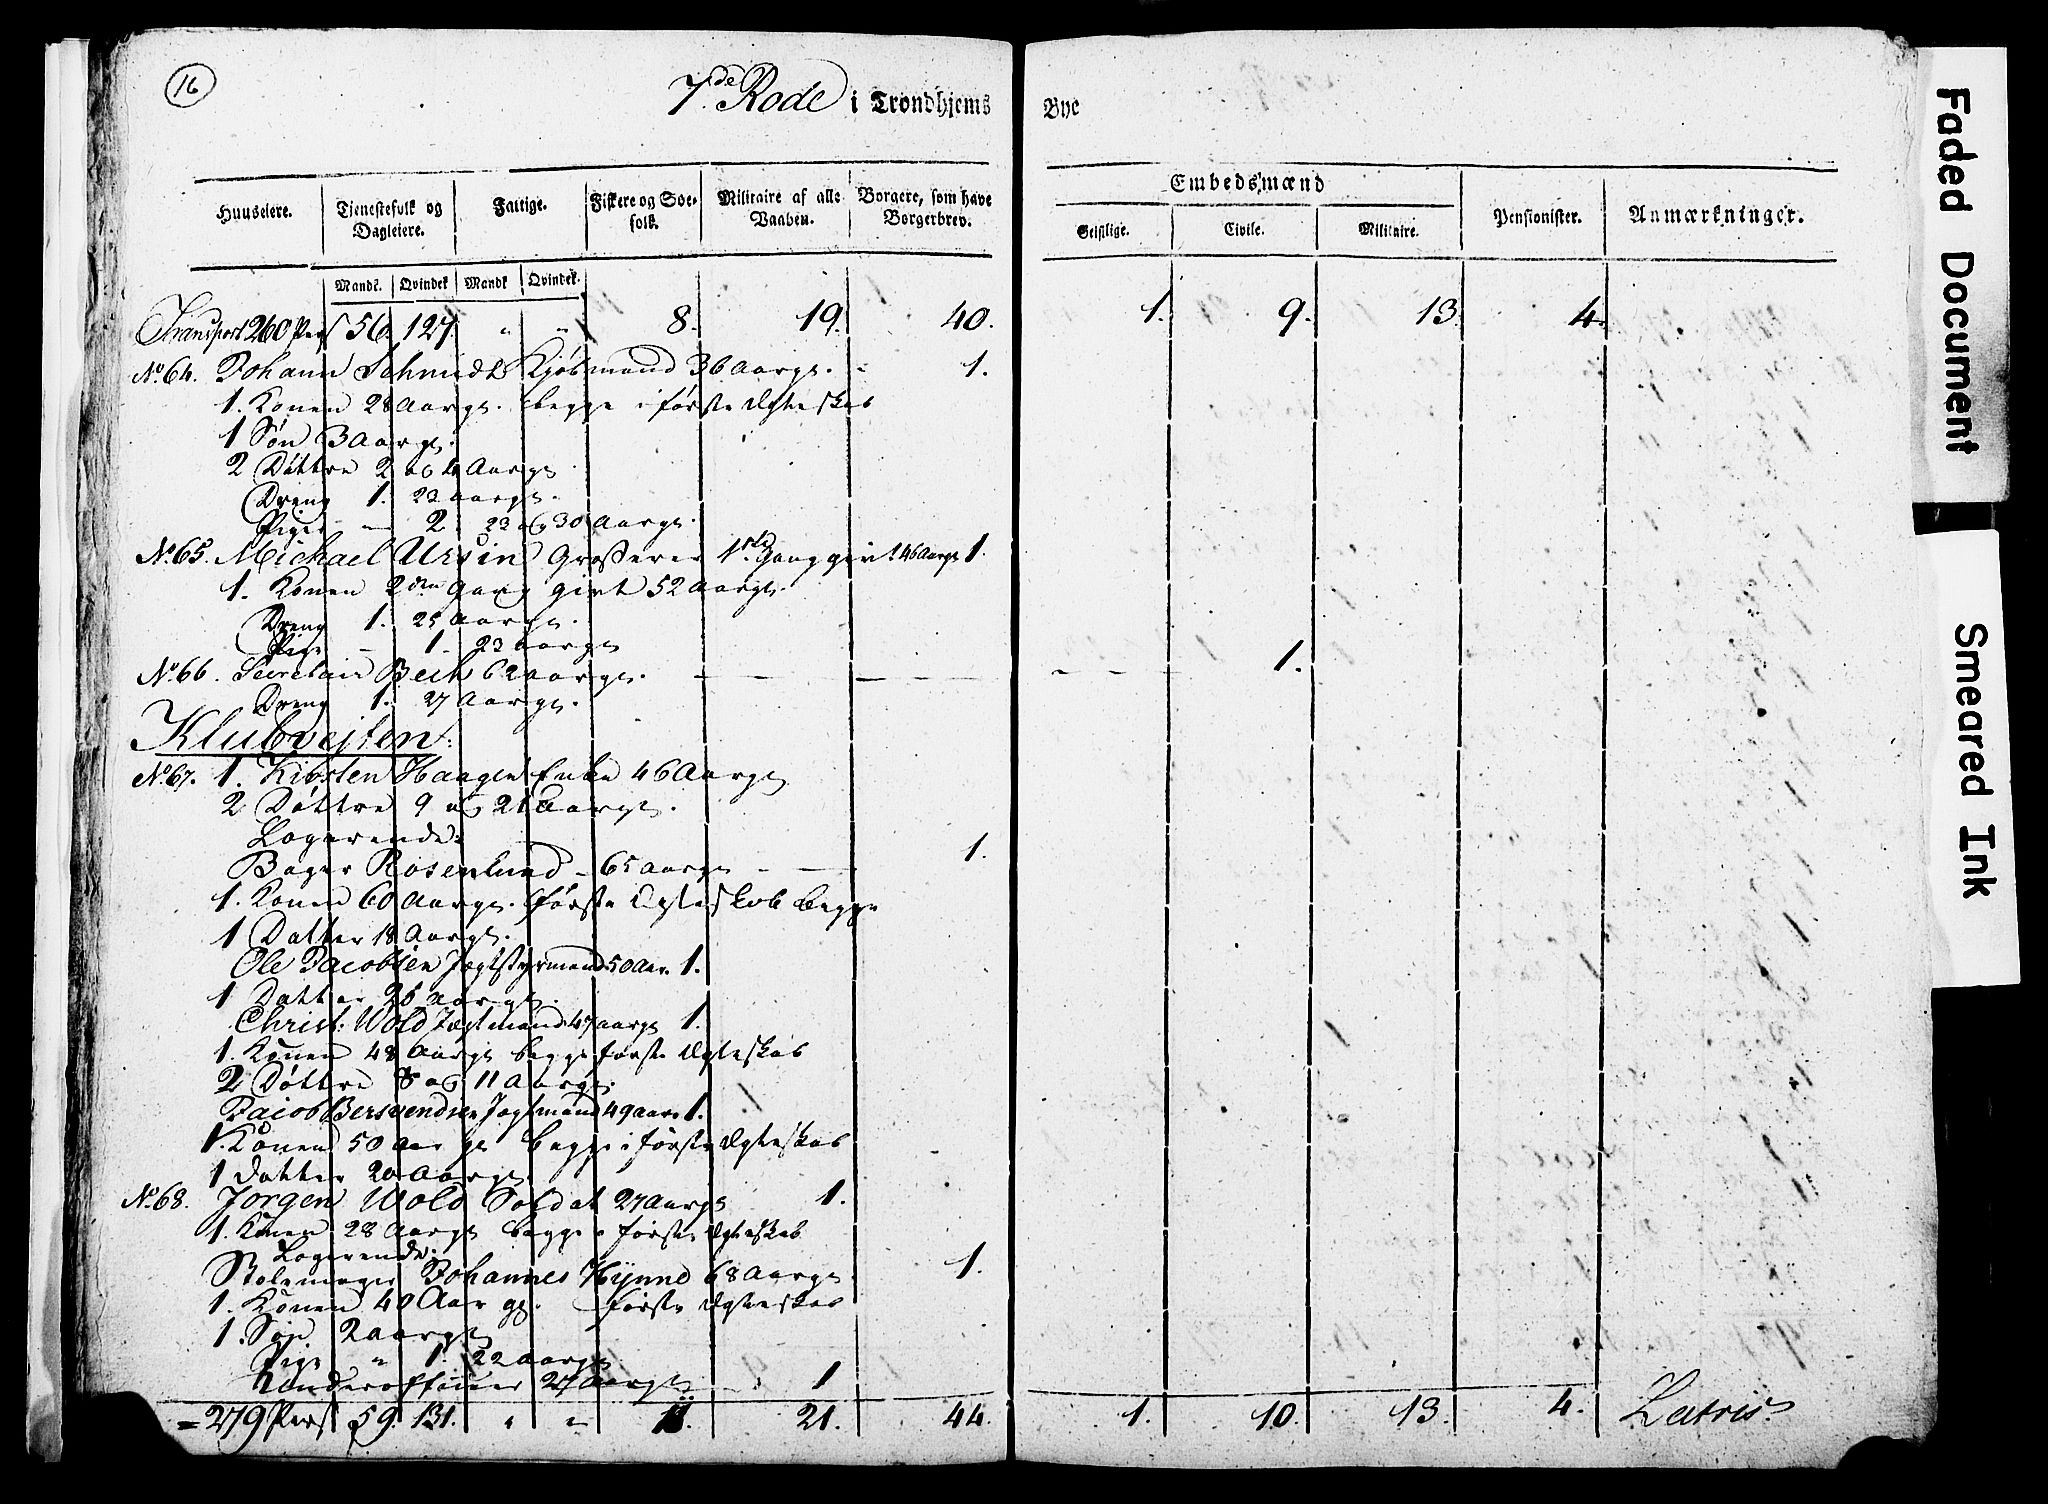 16
7de Rode i Trondhjems Bye
Huuseiere. Tjenestefolk og Dagleiere. Fattige. Fiskere og Søefolk. Militaire af alle Vaaben. Borgere, som have Borgerbrev. Embedsmænd Pensionister. Anmærkninger.
Geistlige. Civile. Militaire.
Mandk. Qvindek Mandk Qvindek.
Transport 260 Pers 56. 127. " " 8. 19. 40. 1. 9. 13. 4.
No. 64. Johann Schmidt Kjøbmand 36 Aarge. - 1.
1. Konen 28 Aarge. begge i første Ægteskab
1 Søn 3 Aarge.
2 Døttre 2 og 4 Aarge
Dreng 1. 23 aarge.
Piger - 2. 23 og 30 Aarge.
No. 65. Michael Ursin Grosserer 1ste Gang givt 46 Aarge 1.
1. Konen 2den Gang givt 52 Aarge.
Dreng 1. 25 Aarge.
Pige - 1. 23 Aarge
No. 66. Secretair Bech 62 aarge. 1.
Dreng 1. 27 Aarge.
Klubvejten:
No. 67. 1. Kirsten Haagen Enke 46 Aarge
2 Døttre 9 og 21 Aarge.
Logerende:
Bager Rosenlund - 65 Aarge - 1.
1. Konen 60 Aarge. første Ægteskab begge
1 Datter 18 Aarge.
Ole Jacobsen Jægtstyrmand 50 Aar. 1.
1 Datter 25 aarge.
Christ: Wold Jægtmand 47 aarge 1.
1. Konen 48 Aarge begge første Ægteskab
2 Døttre 8 og 11 Aarge.
Jacob Bersvendsen Jægtmand 49 aar. 1.
1. Konen 50 Aarge begge i første Ægteskab
1 Datter 20 Aarge.
No. 68. Jørgen Wold Soldat 27 Aarge 1.
1. Konen 28 Aarge begge i første Ægteskab
Logerende:
Stolemager Johannes Hynne 68 Aarge. 1.
1. Konen 40 Aarge. første Ægteskab
1. Søn 2 aarge
Pige " 1. 22 aarge
Underofficer 27 Aarge 1
= 279 Pers 59. 131. " " 11. 21. 44. 1. 10. 13. 4. Latris.
Faded Document
Smeared Ink